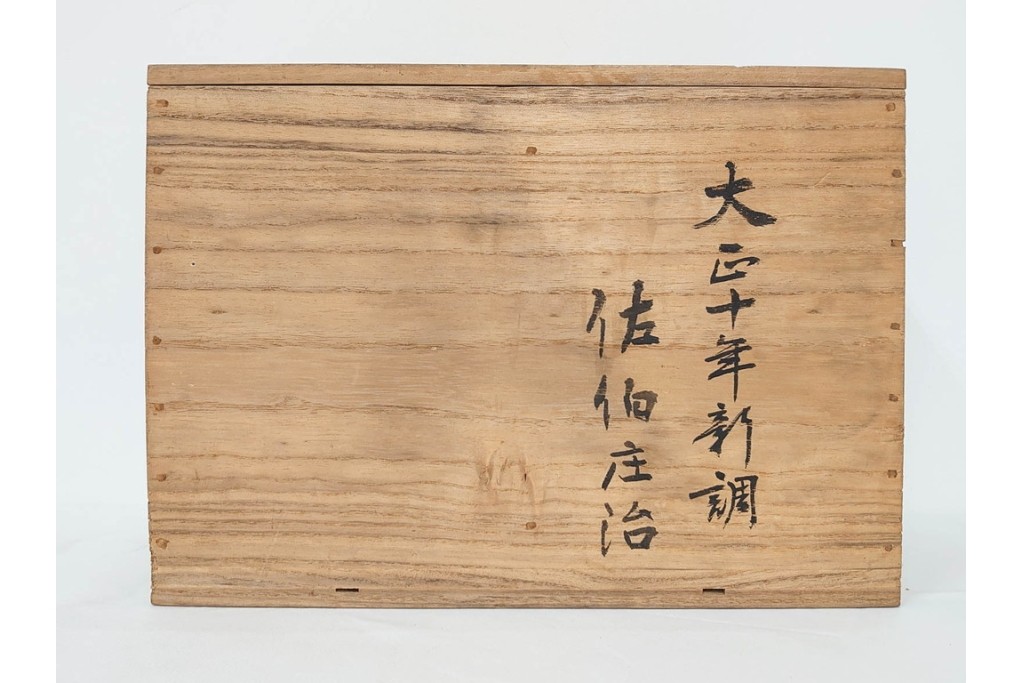 大正十年新調
佐伯庄治